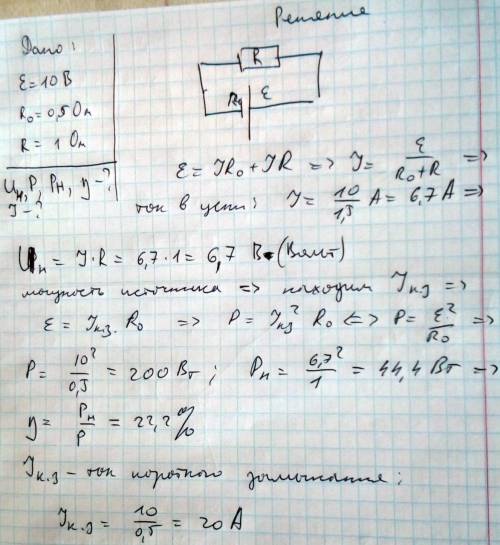 Решение
Дано:
ε = 10 В
R₀ = 0,5 Ом
R = 1 Ом
Uн, P, Pн, η - ?
I - ?
R
R₀ ε
ε = IR₀ + IR => I = ε / (R₀ + R) =>
ток в цепи: I = 10 / 1,5 A = 6,7 A =>
Uн = I·R = 6,7·1 = 6,7 В (Вольт)
мощность источника => находим Iкз =>
ε = Iкз · R₀ => P = Iкз² R₀ <=> P = ε² / R₀ =>
P = 10² / 0,5 = 200 Вт; Pн = 6,7² / 1 = 44,4 Вт =>
η = Pн / P = 22,2 %
Iк.з - ток короткого замыкания:
Iк.з = 10 / 0,5 = 20 A